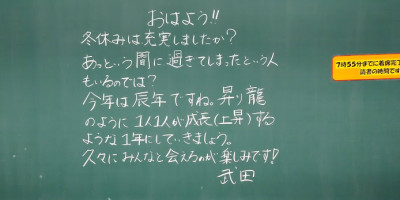 おはよう!!
冬休みは充実しましたか?
あっという間に過ぎてしまったという人
もいるのでは?
今年は辰年ですね。昇り龍
のように1人1人が成長(上昇)する
ような1年にしていきましょう。
久々にみんなと会えるのが楽しみです!
武田
7時55分までに着席完了
読書の時間です